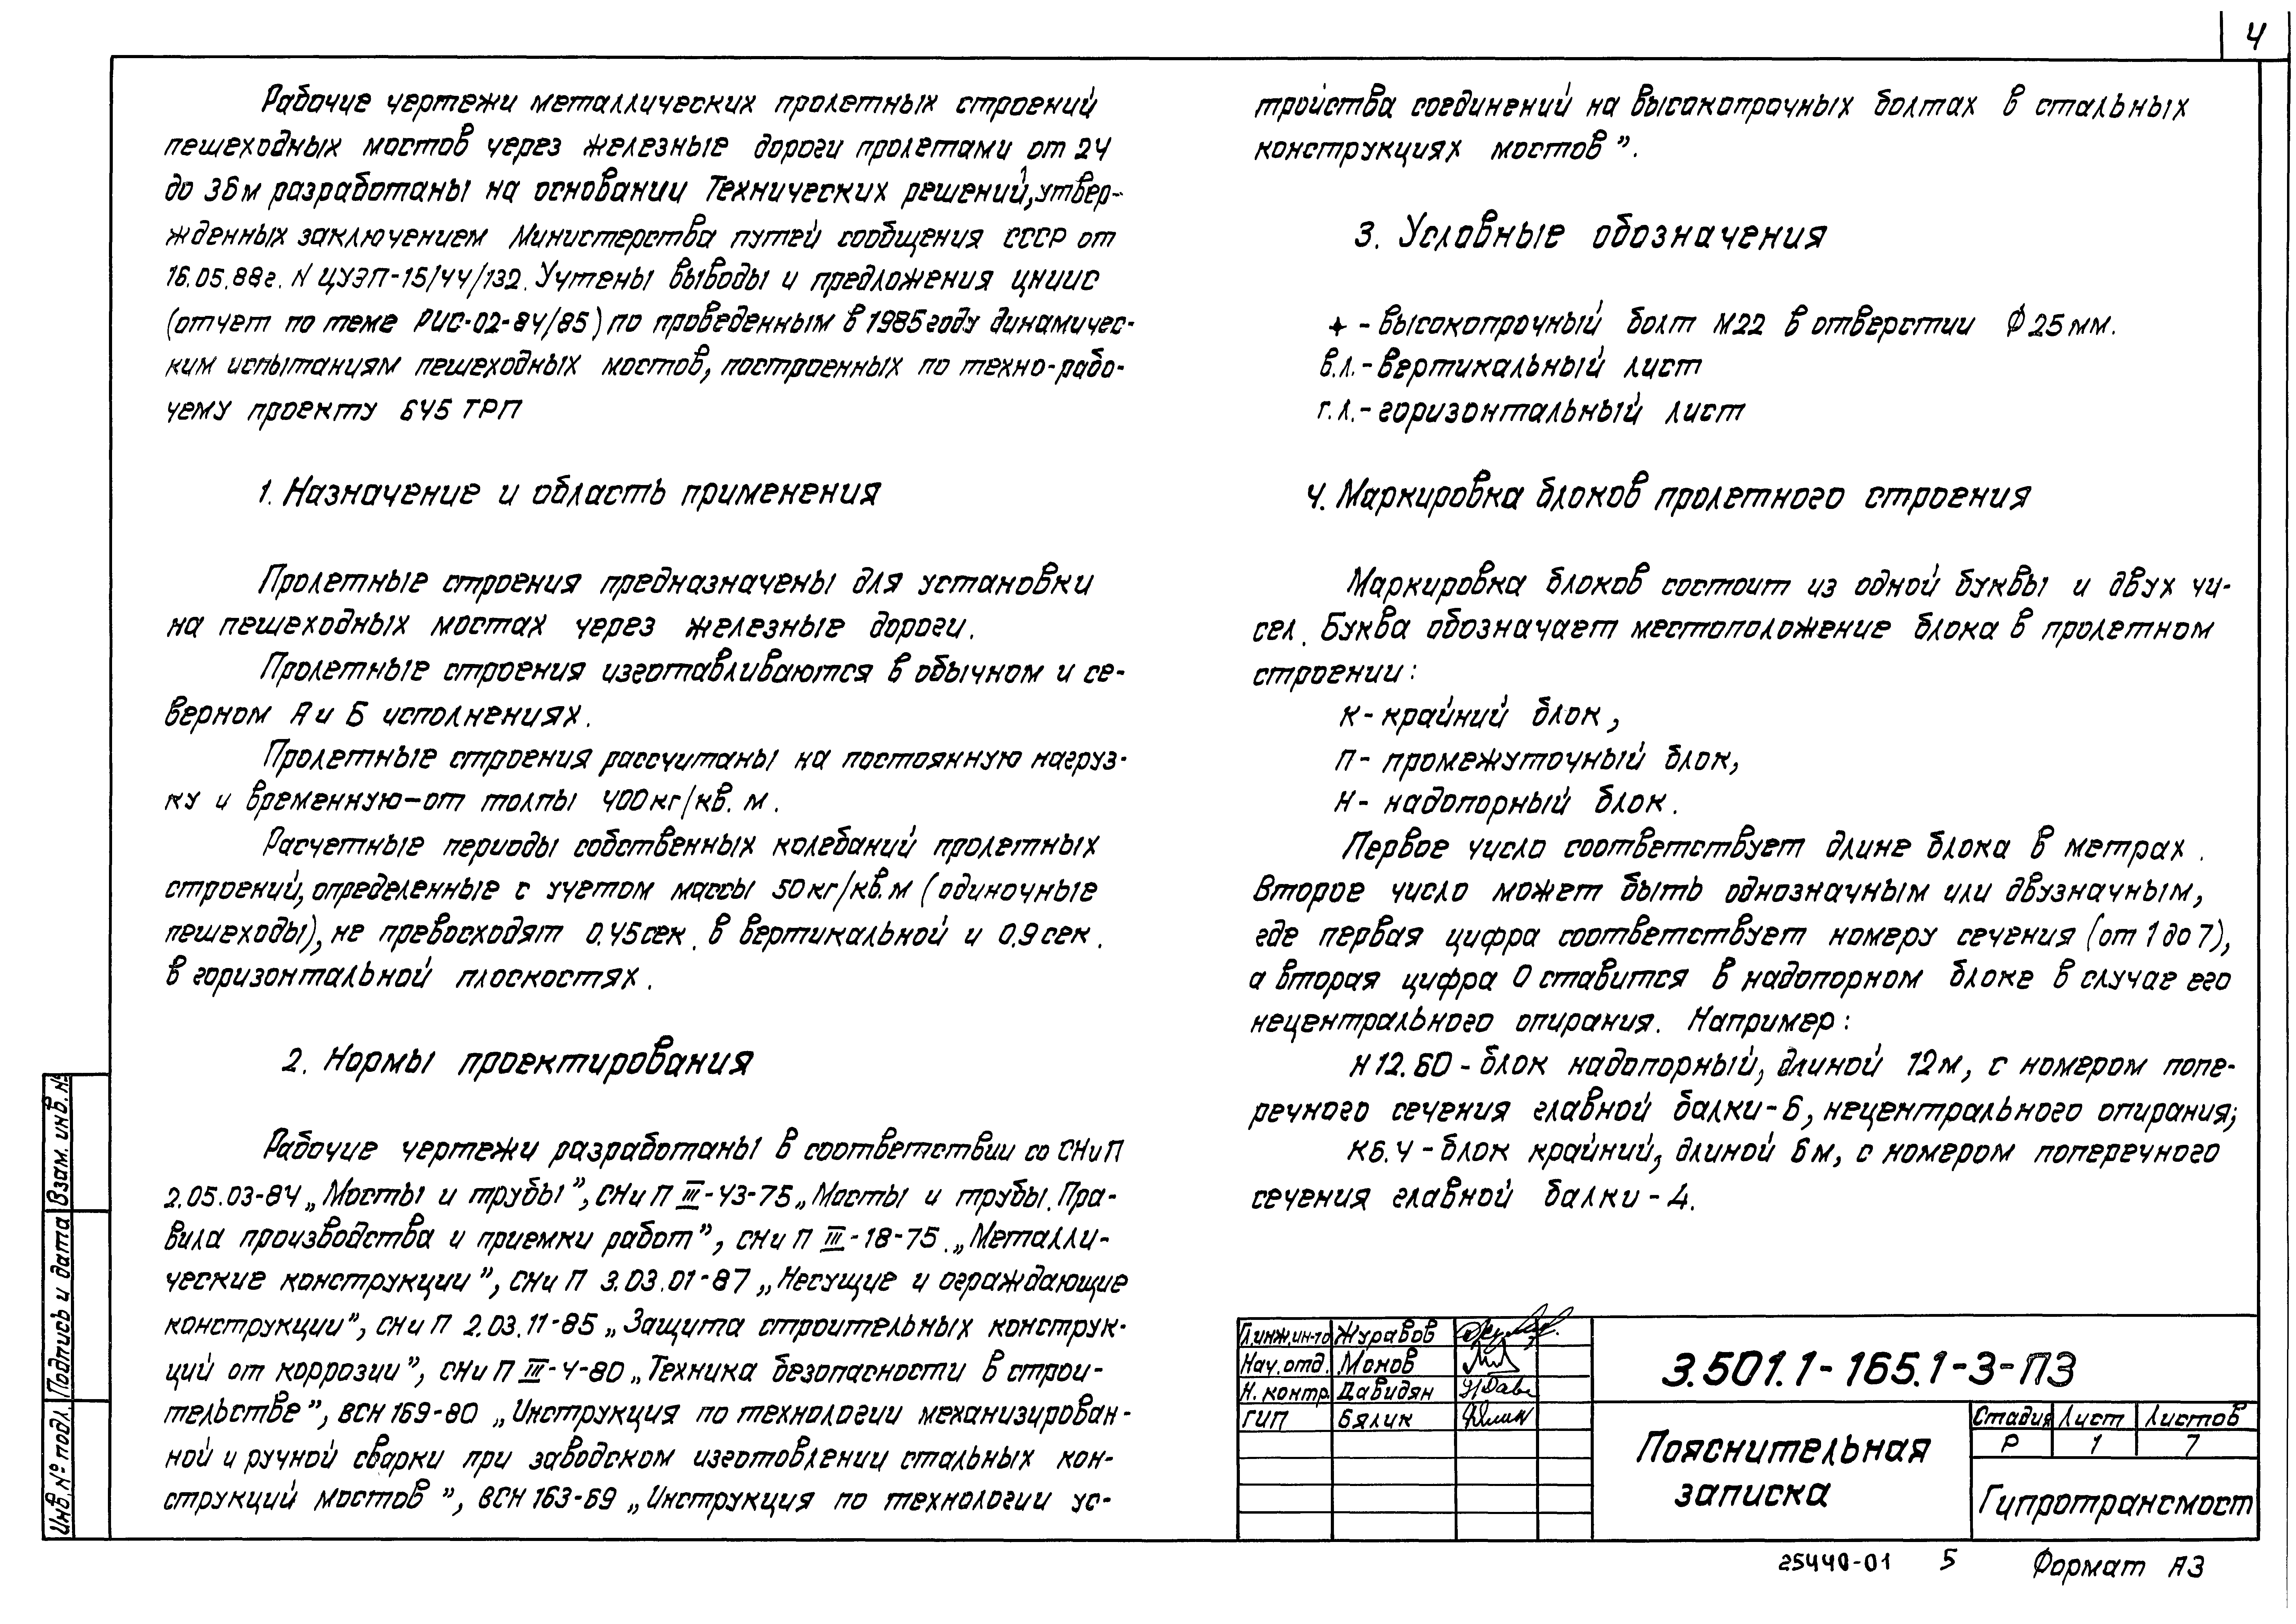 4
Рабочие чертежи металлических пролетных строений
пешеходных мостов через железные дороги пролетами от 24
до 36м разработаны на основании Технических решений, утвер-
жденных заключением Министерства путей сообщения СССР от
16.05.88г. N ЦУЭП-15/44/132. Учтены выводы и предложения ЦНИИС
(отчет по теме РИС-02-84/85) по проведенным в 1985 году динамичес-
ким испытаниям пешеходных мостов, построенных по техно-рабо-
чему проекту 645 ТРП
1. Назначение и область применения
Пролетные строения предназначены для установки
на пешеходных мостах через железные дороги.
Пролетные строения изготавливаются в обычном и се-
верном А и Б исполнениях.
Пролетные строения рассчитаны на постоянную нагруз-
ку и временную-от толпы 400кг/кв.м.
Расчетные периоды собственных колебаний пролетных
строений, определенные с учетом массы 50кг/кв.м (одиночные
пешеходы), не превосходят 0.45сек. в вертикальной и 0.9сек.
в горизонтальной плоскостях.
2. Нормы проектирования
Рабочие чертежи разработаны в соответствии со СНиП
2.05.03-84 „Мосты и трубы”, СНиП III-43-75 „Мосты и трубы. Пра-
вила производства и приемки работ”, СНиП III-18-75 „Металли-
ческие конструкции”, СНиП 3.03.01-87 „Несущие и ограждающие
конструкции”, СНиП 2.03.11-85 „Защита строительных конструк-
ций от коррозии”, СНиП III-4-80 „Техника безопасности в строи-
тельстве”, ВСН 169-80 „Инструкция по технологии механизирован-
ной и ручной сварки при заводском изготовлении стальных кон-
струкций мостов”, ВСН 163-69 „Инструкция по технологии ус-
тройства соединений на высокопрочных болтах в стальных
конструкциях мостов”.
3. Условные обозначения
+ - высокопрочный болт М22 в отверстии Ф 25мм.
в.л.-вертикальный лист
г.л.-горизонтальный лист
4. Маркировка блоков пролетного строения
Маркировка блоков состоит из одной буквы и двух чи-
сел. Буква обозначает местоположение блока в пролетном
строении:
К- крайний блок,
П- промежуточный блок,
Н- надопорный блок.
Первое число соответствует длине блока в метрах.
Второе число может быть однозначным или двузначным,
где первая цифра соответствует номеру сечения (от 1 до 7),
а вторая цифра 0 ставится в надопорном блоке в случае его
нецентрального опирания. Например:
Н12.60 - блок надопорный, длиной 12м, с номером попе-
речного сечения главной балки-6, нецентрального опирания;
К6.4 - блок крайний, длиной 6м, с номером поперечного
сечения главной балки - 4.
Взам. инв.№
Подпись и дата
Инв.№ подл.
Гл.инж.ин-та Журавов
Нач.отд. Монов
Н.контр. Давидян
ГИП Бялик
3.501.1-165.1-3-ПЗ
Пояснительная
записка
Стадия Лист Листов
Р 1 7
Гипротрансмост
25440-01 5 Формат А3